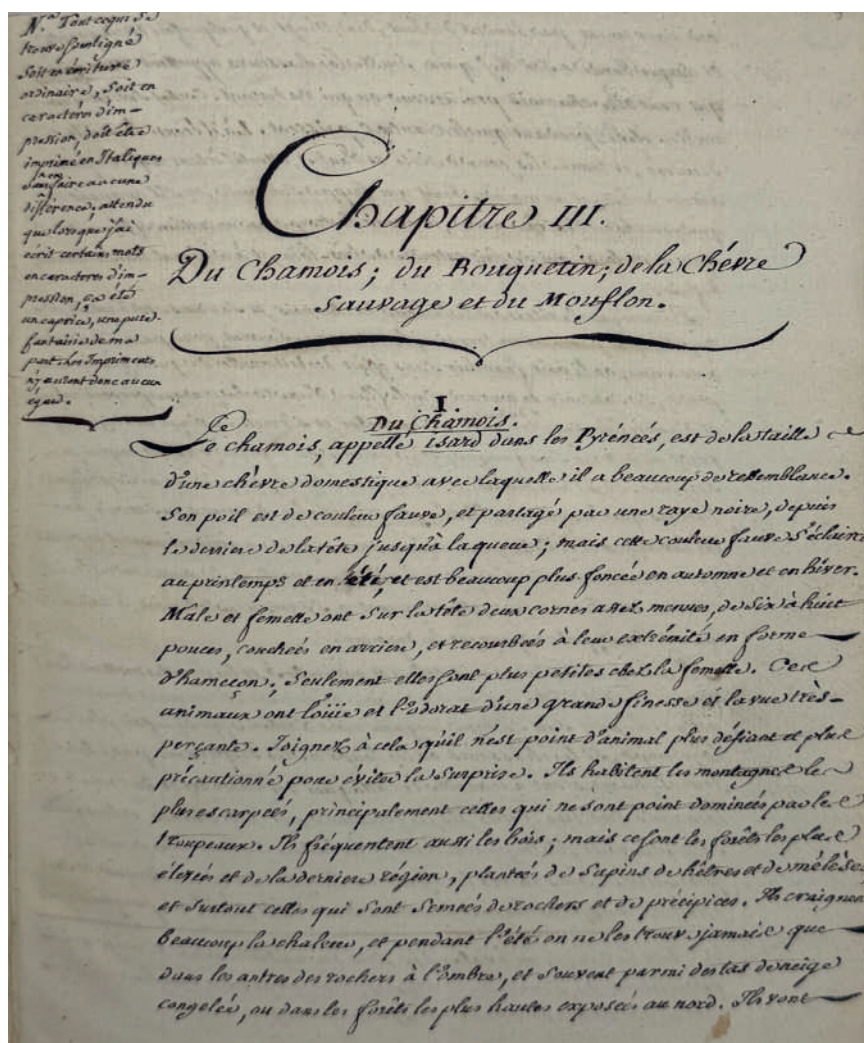 N.ª Tout ce qui se
trouve souligné
soit en écriture
ordinaire, soit en
caractères d'im-
pression, doit être
imprimé en Italiques
sans en faire aucune
différence, attendu
que lorsque j'ai
écrit certains mots
en caracteres d'im-
pression, ça été
un caprice, une pure
fantaisie de ma
part. Les Imprimeurs
n'y auront donc aucun
égard.
Chapitre III.
Du Chamois; du Bouquetin; de la Chévre
Sauvage et du Mouflon.
I
Du Chamois.
Le chamois, appellé isard dans les Pyrénées, est de la taille
d'une chèvre domestique avec laquelle il a beaucoup de ressemblance.
Son poil est de couleur fauve, et partagé par une raye noire, depuis
le derriere de la tête jusqu'à la queue; mais cette couleur fauve s'éclaircit
au printemps et en été, et est beaucoup plus foncée en automne et en hiver.
Male et femelle ont sur la tête deux cornes assez menues, de six à huit
pouces, couchées en arriere, et recourbées à leur extrémité en forme
d'hameçon; seulement elles sont plus petites chez la femelle. Ces
animaux ont l'oüie et l'odorat d'une grande finesse et la vue très-
perçante. Joignez à cela qu'il n'est point d'animal plus défiant et plus
précautionné pour éviter la surprise. Ils habitent les montagnes les
plus escarpées, principalement celles qui ne sont point dominées par les
troupeaux. Ils fréquentent aussi les bois; mais ce sont les forêts les plus
élevées et de la derniere région, plantées de sapins de hêtres et de mélèses
et surtout celles qui sont semées de rochers et de précipices. Ils craignent
beaucoup la chaleur, et pendant l'été on ne les trouve jamais que
dans les antres des rochers à l'ombre, et souvent parmi des tas de neige
congelée, ou dans les forêts les plus hautes exposées au nord. Ils vont